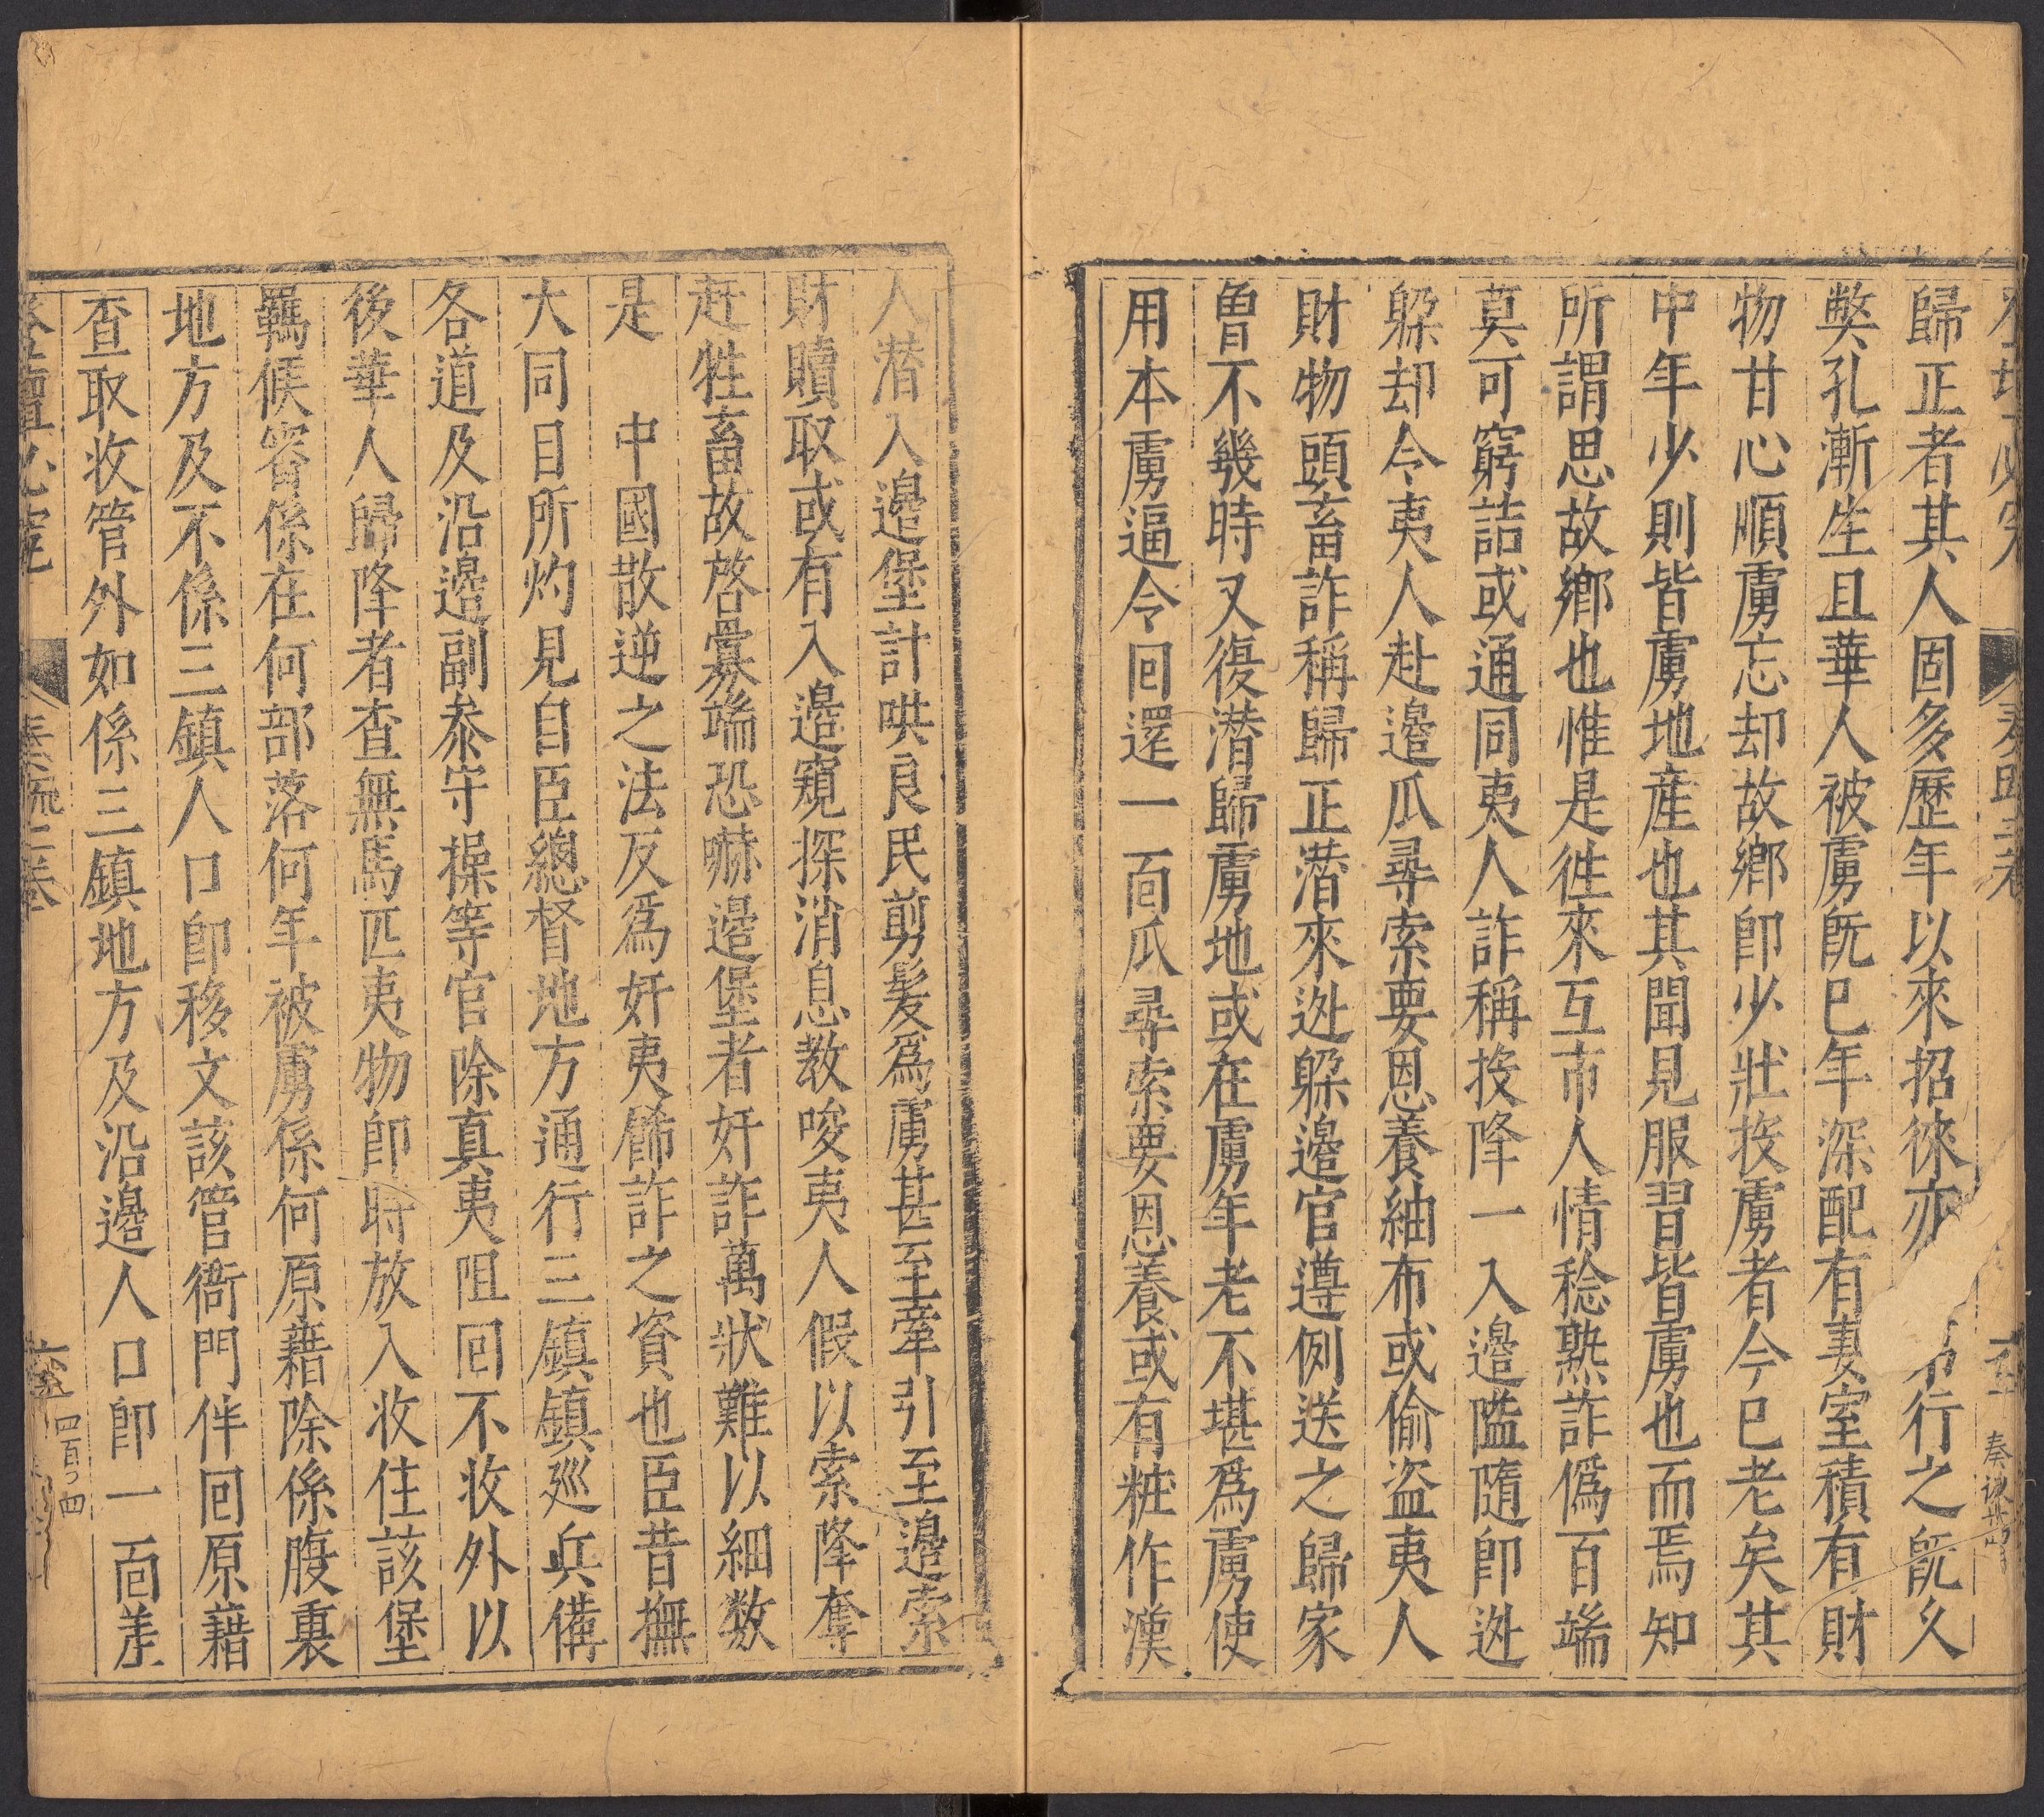 歸正者其人固多歷年以來招徠亦行之旣久
弊孔漸生且華人被虜旣巳年深配有妻室積有財
物甘心順虜忘却故鄕卽少壯投虜者今巳老矣其
中年少則皆虜地產也其聞見服習皆虜也而焉知
所謂思故鄕也惟是徃來互市人情稔熟詐僞百端
莫可窮詰或通同夷人詐稱投降一入邊隘隨卽迯
躱却令夷人赴邊瓜尋索要恩養紬布或偷盜夷人
財物頭畜詐稱歸正潜來迯躱邊官遵例送之歸家
曾不幾時又復潜歸虜地或在虜年老不堪爲虜使
用本虜逼令囘還一面瓜尋索要恩養或有粧作漢
人潜入邊堡計哄良民剪髮爲虜甚至牽引至邊索
財贖取或有入邊窺探消息教唆夷人假以索降奪
赶牲畜故啓釁端恐嚇邊堡者奸詐萬狀難以細数
是　中國散逆之法反爲奸夷餙詐之資也臣昔撫
大同目所灼見自臣總督地方通行三鎮鎮廵兵備
各道及沿邊副叅守操等官除真夷阻囘不收外以
後華人歸降者查無馬匹夷物卽時放入收住該堡
羈候審係在何部落何年被虜係何原藉除係腹裏
地方及不係三鎮人口卽移文該管衙門伴囘原藉
查取收管外如係三鎮地方及沿邊人口卽一面差
奏疏二卷
四百四